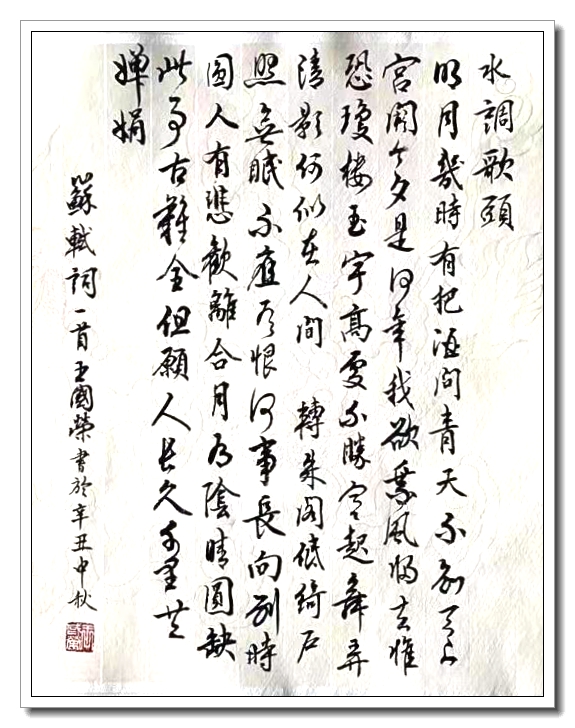 水調歌頭
明月幾時有把酒問青天不知天上
宮闕今夕是何年我欲乘風歸去惟
恐瓊樓玉宇高處不勝寒起舞弄
清影何似在人間 轉朱閣低綺戶
照無眠不應有恨何事長向別時
圓人有悲歡離合月有陰晴圓缺
此事古難全但願人長久千里共
嬋娟
蘇軾詞一首王國榮書於辛丑中秋